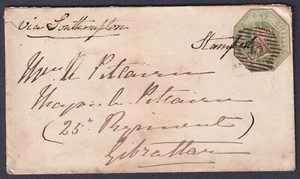 via Southampton
Stamped
ONE
Mrs Pitcairn
Major Pitcairn
(25th Regiment)
Gibraltar